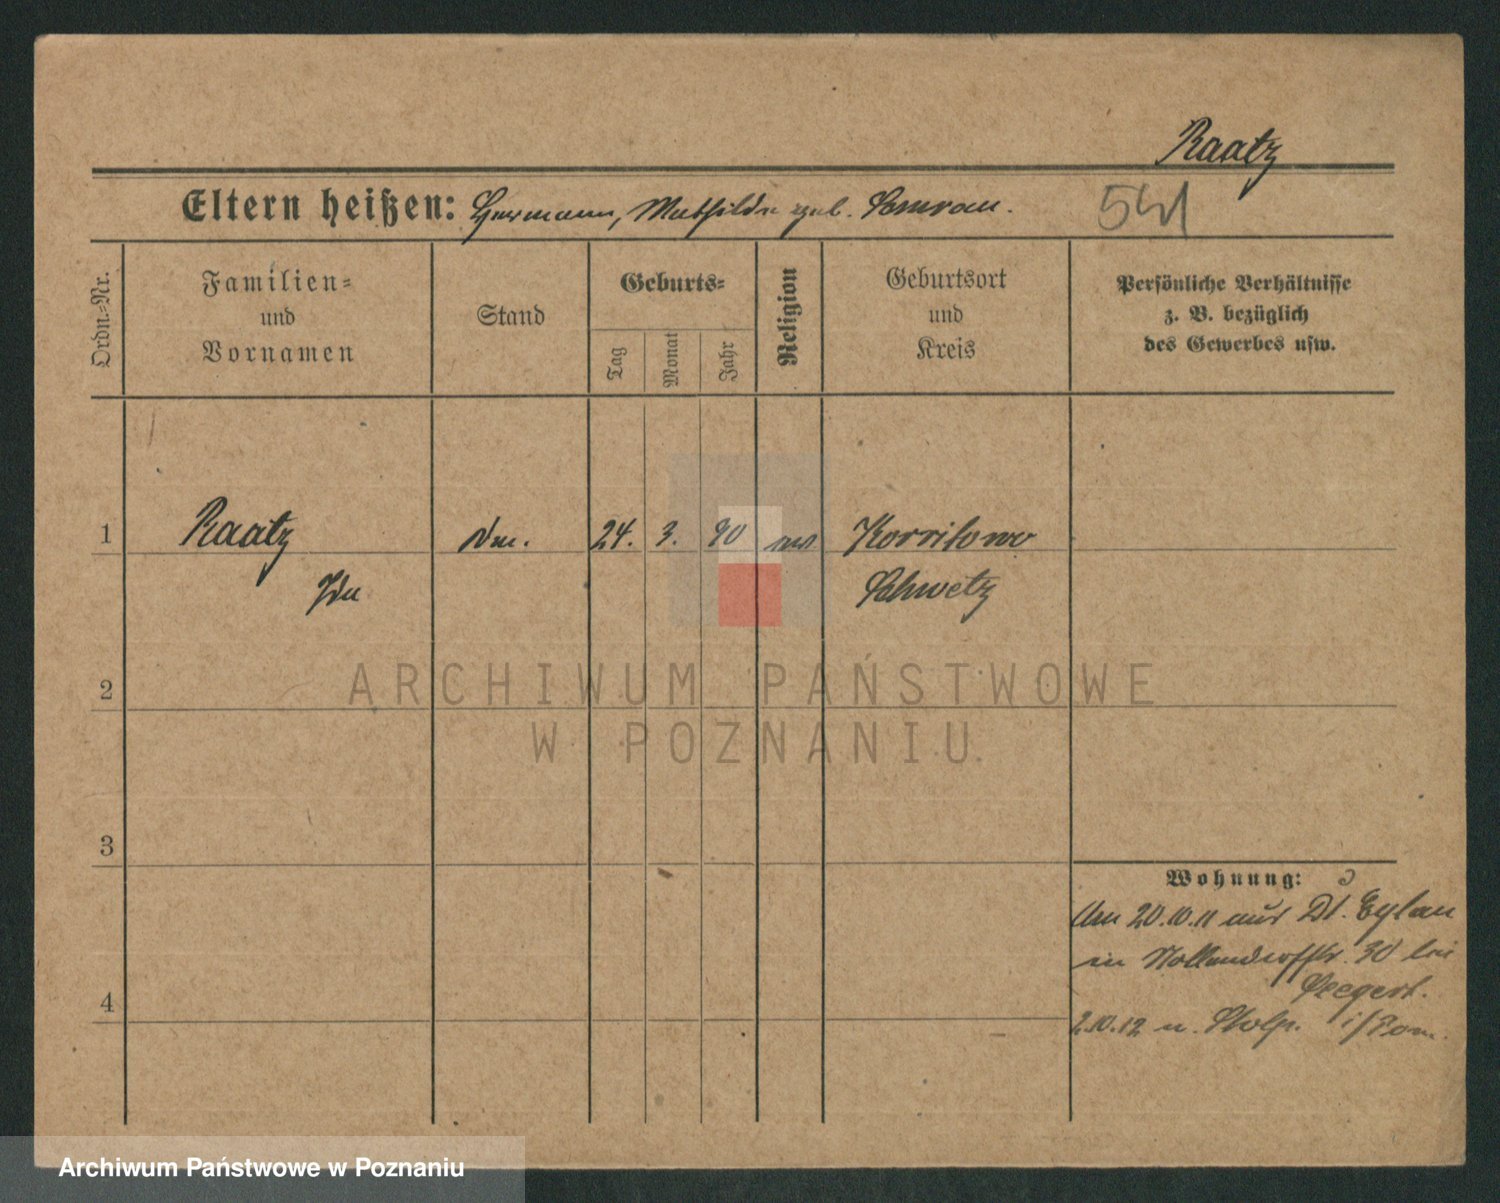 Raatz
Eltern heißen: Hermann, Mathilde geb. Semrau.
541
Ordn.-Nr.
Familien-
und
Vornamen
Stand
Geburts-
Tag
Monat
Jahr
Religion
Geburtsort
und
Kreis
Persönliche Verhältnisse
z. B. bezüglich
des Gewerbes usw.
1
Raatz
24. 3. 90
Korritowo
Ida
Schwetz
2
ARCHIWUM PAŃSTWOWE
W POZNANIU
3
Wohnung:
Am 20.10.11 aus Dt. Eylau
in Nollendorffstr. 30 bei
Seegert.
4
2.10.12 n. Stolp. i/Pom.
Archiwum Państwowe w Poznaniu